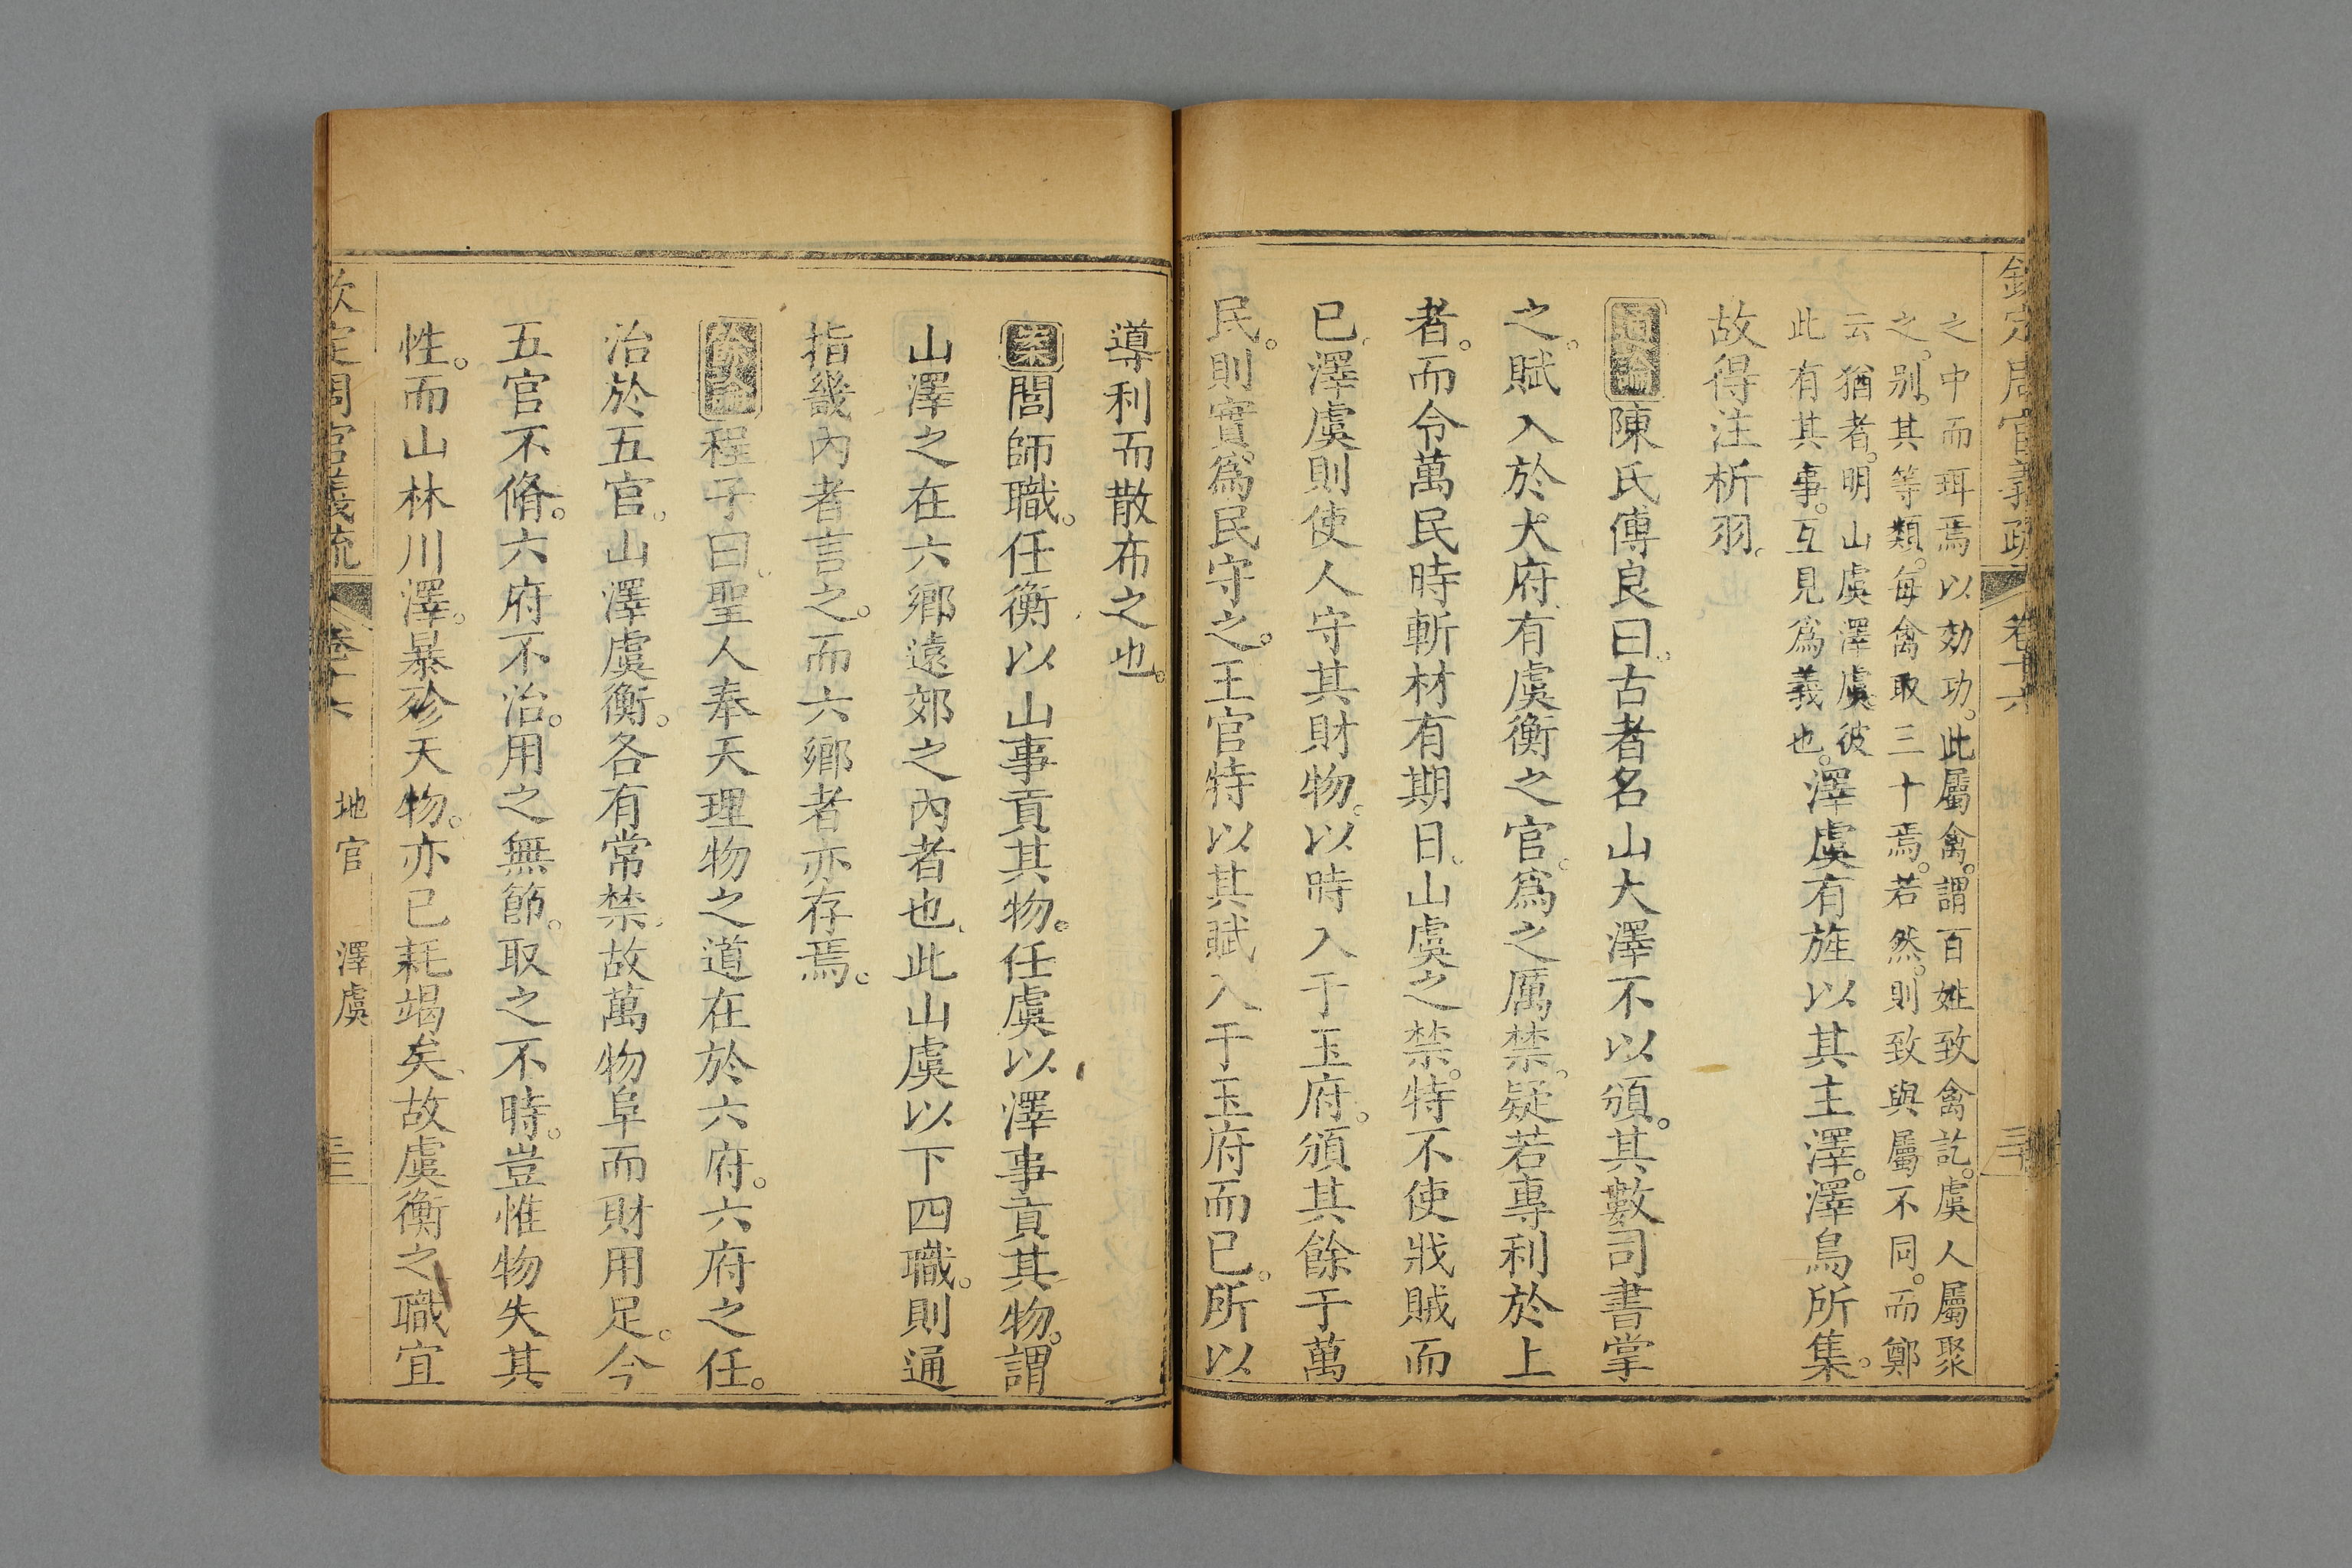 欽定周官義疏 卷十六
之中而珥焉以効功。此屬禽。謂百姓致禽訖。虞人屬聚
之。别。其等類。每禽取三十焉。若然。則致與屬不同。而鄭
云猶者。明山虞澤虞彼
此有其事。互見爲義也。澤虞有旌以其主澤。澤鳥所集。
故得注析羽。
通論陳氏傅良曰。古者名山大澤不以頒。其數司書掌
之。賦入於大府有虞衡之官。爲之厲禁。疑若專利於上
者。而令萬民時斬材有期日。山虞之禁。特不使戕賊而
已。澤虞則使人守其財物。以時入于玉府。頒其餘于萬
民。則實爲民守之。王官特以其賦入于玉府而已。所以
導利而散布之也。
案閭師職。任衡以山事貢其物。任虞以澤事貢其物。謂
山澤之在六鄉遠郊之內者也。此山虞以下四職。則通
指畿內者言之。而六鄉者亦存焉。
餘論程子曰。聖人奉天理物之道在於六府。六府之任。
治於五官。山澤虞衡。各有常禁。故萬物阜而財用足。今
五官不脩。六府不治。用之無節。取之不時。豈惟物失其
性。而山林川澤。暴殄天物。亦已耗竭矣。故虞衡之職宜
欽定周官義疏 卷十六 地官 澤虞